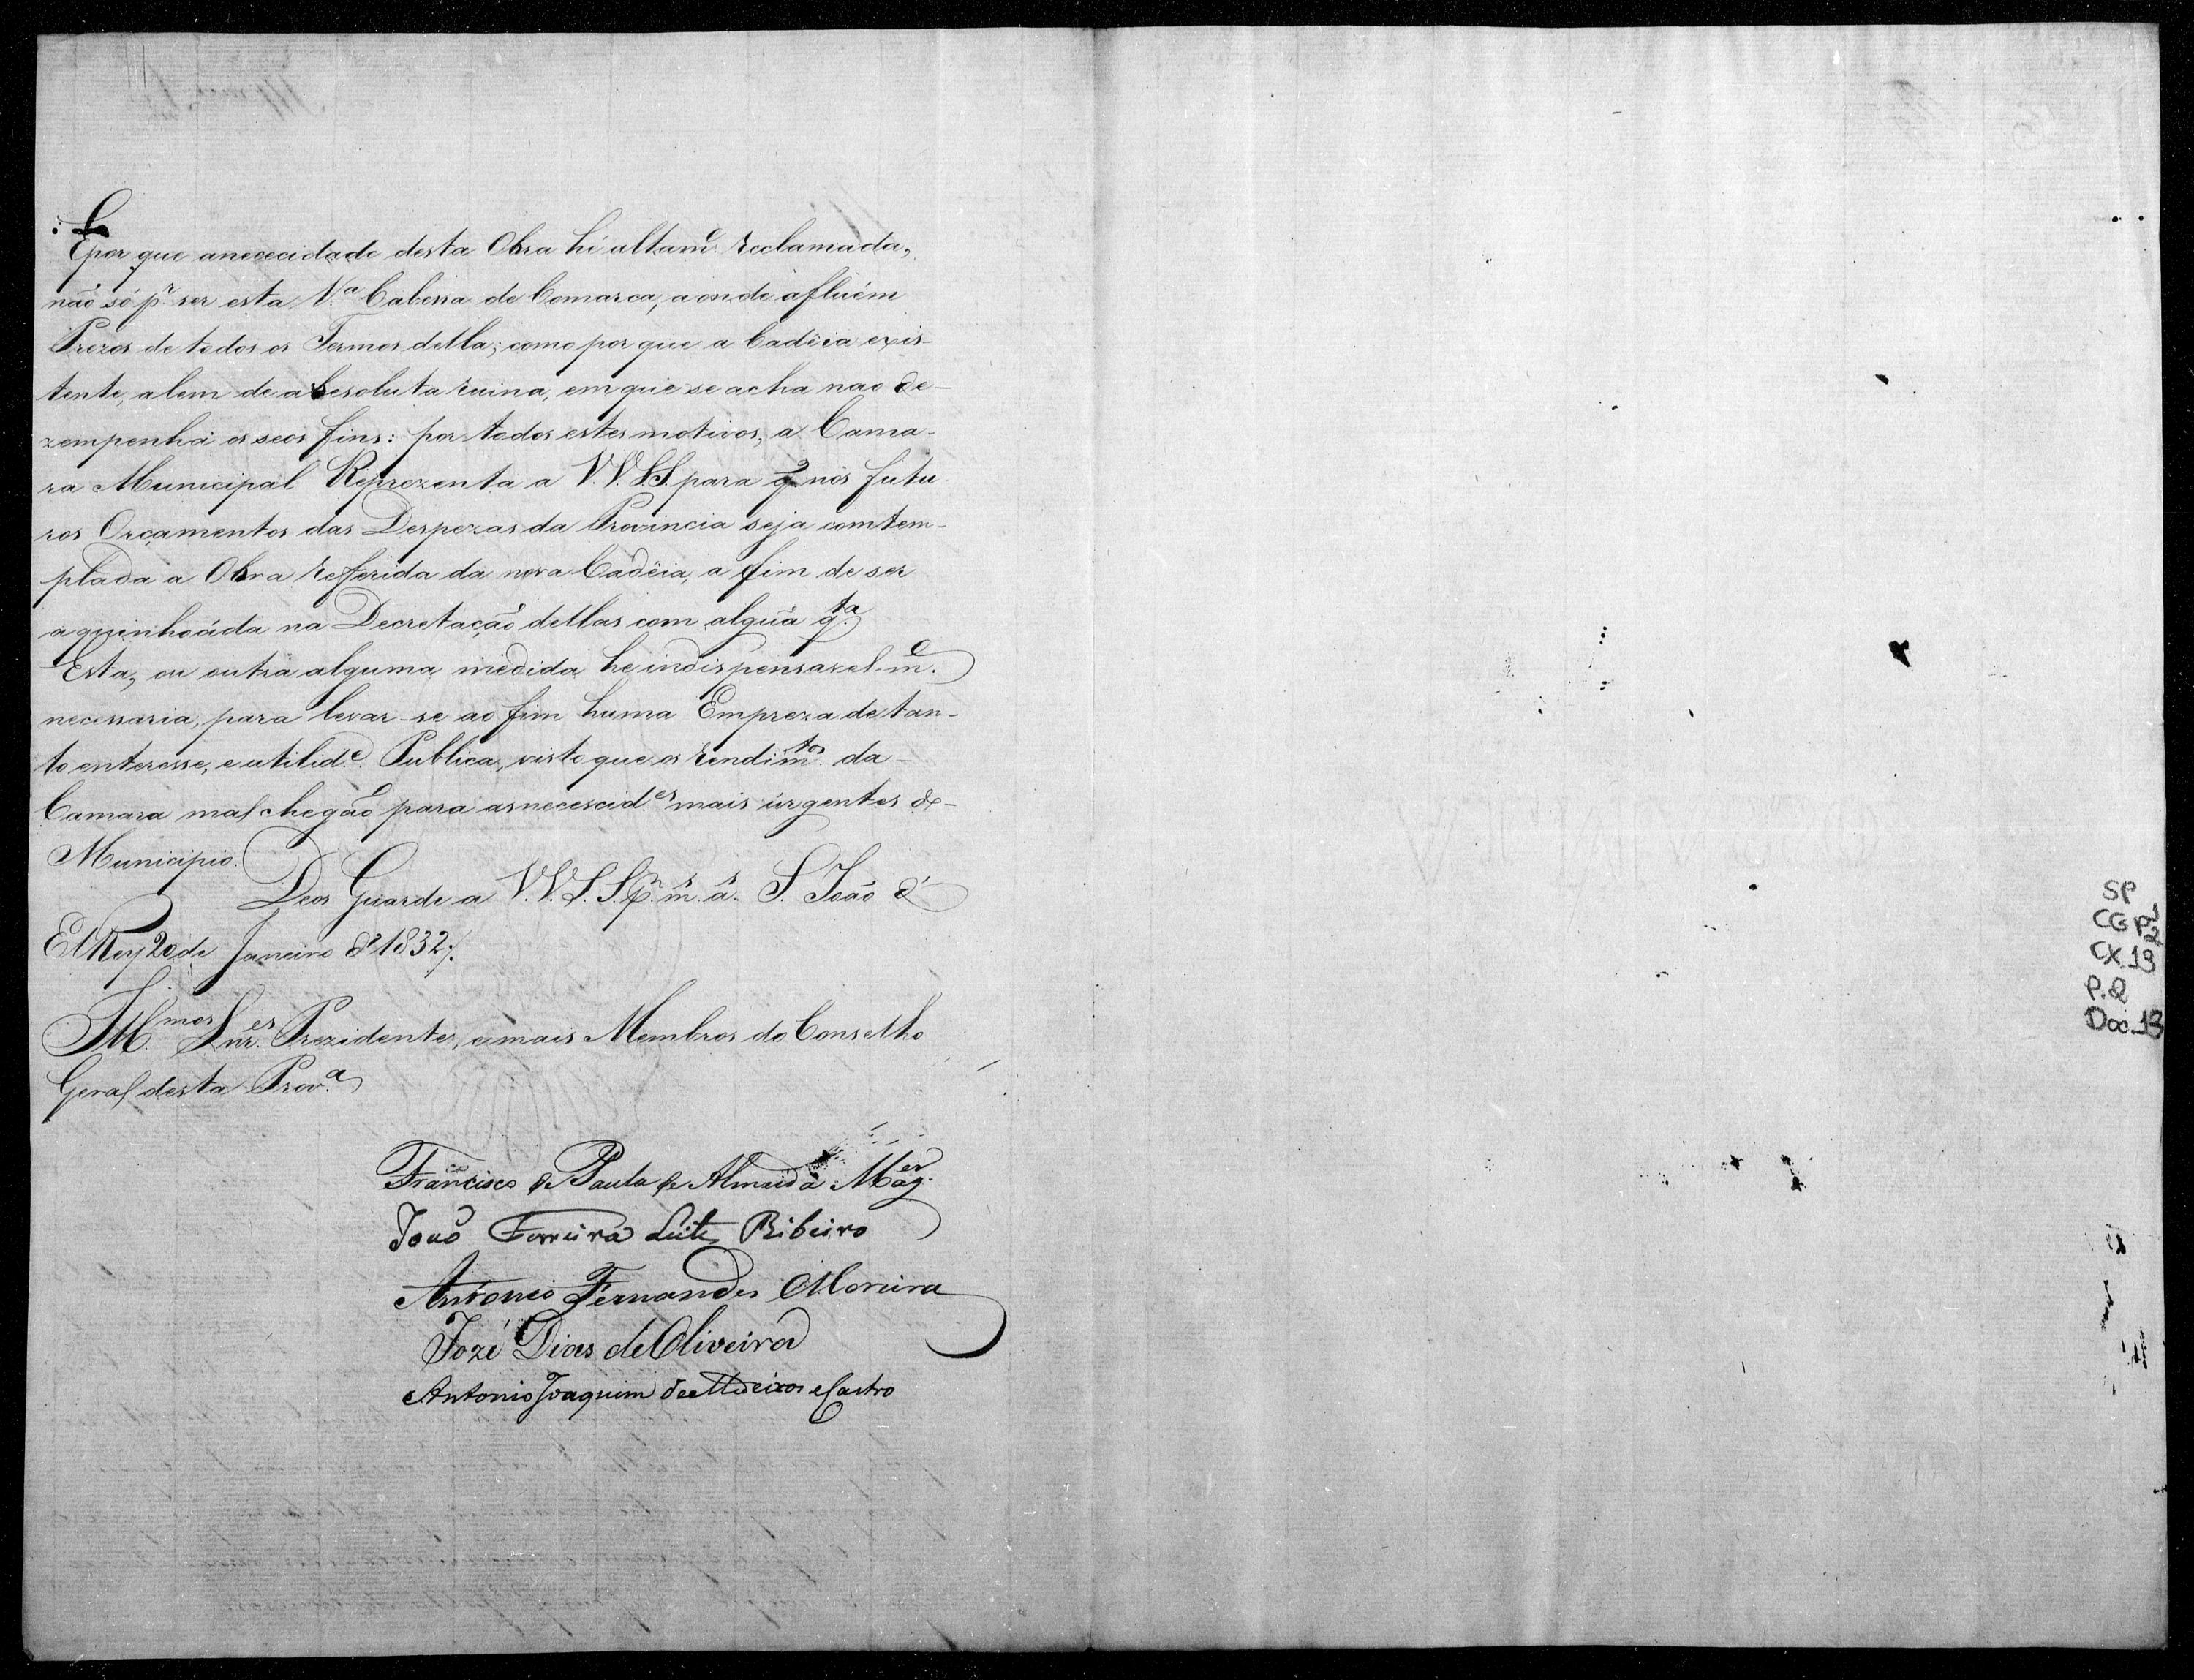 E por que a nececidade desta Obra hé altamᵉ reclamada,
não só pʳ ser esta Vᵃ Cabessa de Comarca, a onde afluém
Prezos de todos os Termos della; como por que a Cadêia exis-
tente, alem de absesoluta ruina, em que se acha nao de-
zempenha os seos fins: por todos estes motivos, a Cama-
ra Municipal Reprezenta a V.V.S.S. para q̃ nos futu
ros Orçamentos das Despezas da Provincia seja comtem-
plada a Obra refferida da nova Cadêia, a fim de ser
aquinhoáda na Decretação dellas com algũa q.ᵗᵃ
Esta, ou outra alguma medida he indispensavel-m.ᵉ
necessaria, para levar-se ao fim huma Empreza de tan-
to enteresse, e utilid.ᵉ Publica, visto que os rendim.ᵗᵒˢ da
Camara mal chegão para as necescid.ᵉˢ mais úrgentes do
Municipio.
Deos Guarde a V.V.S.S. p.ʳ m.ˢ a.ˢ S. João d'
El Rey 20 de Janeiro dᵉ 1832/.
Ill.ᵐᵒˢ Snr.ᵉˢ Prezidente, e mais Membros do Conselho
Geral desta Prov.ᵃ
Francisco de Paula de Almeida Mag.ᵉˢ
João Ferreira Leite Ribeiro
Antonio Fernandes Moreira
Jozé Dias de Oliveira
Antonio Joaquim de Castro
SP
CG P1/2
CX.13
P.2
Doc.13